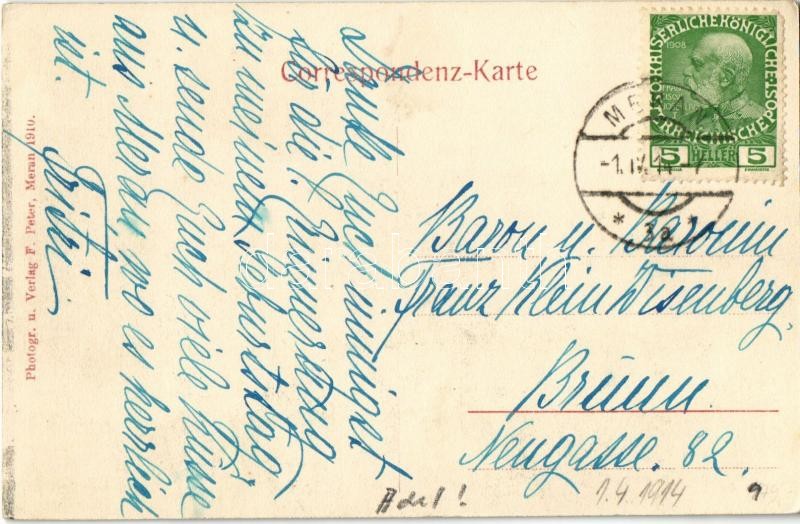 Correspondenz-Karte
Danke Euch innigst
für die Erinnerung
zu meinem Geburtstag
u. sende Euch viele Küsse
aus Meran, wo es herrlich
ist.
Fritzi.
Photogr. u. Verlag F. Peter, Meran 1910.
KAISERLICHE KÖNIGLICHE
ÖSTERREICHISCHE POST
1908
5 HELLER 5
-1.IV.14-7
* 3a *
Baron u. Baronin
Franz Klein Wisenberg,
Brünn.
Neugasse. 82.
Adel!
1.4.1914
darabanth